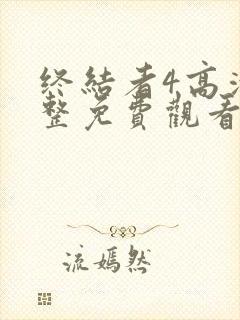 终結者4高
整免費觀看
流嫣然